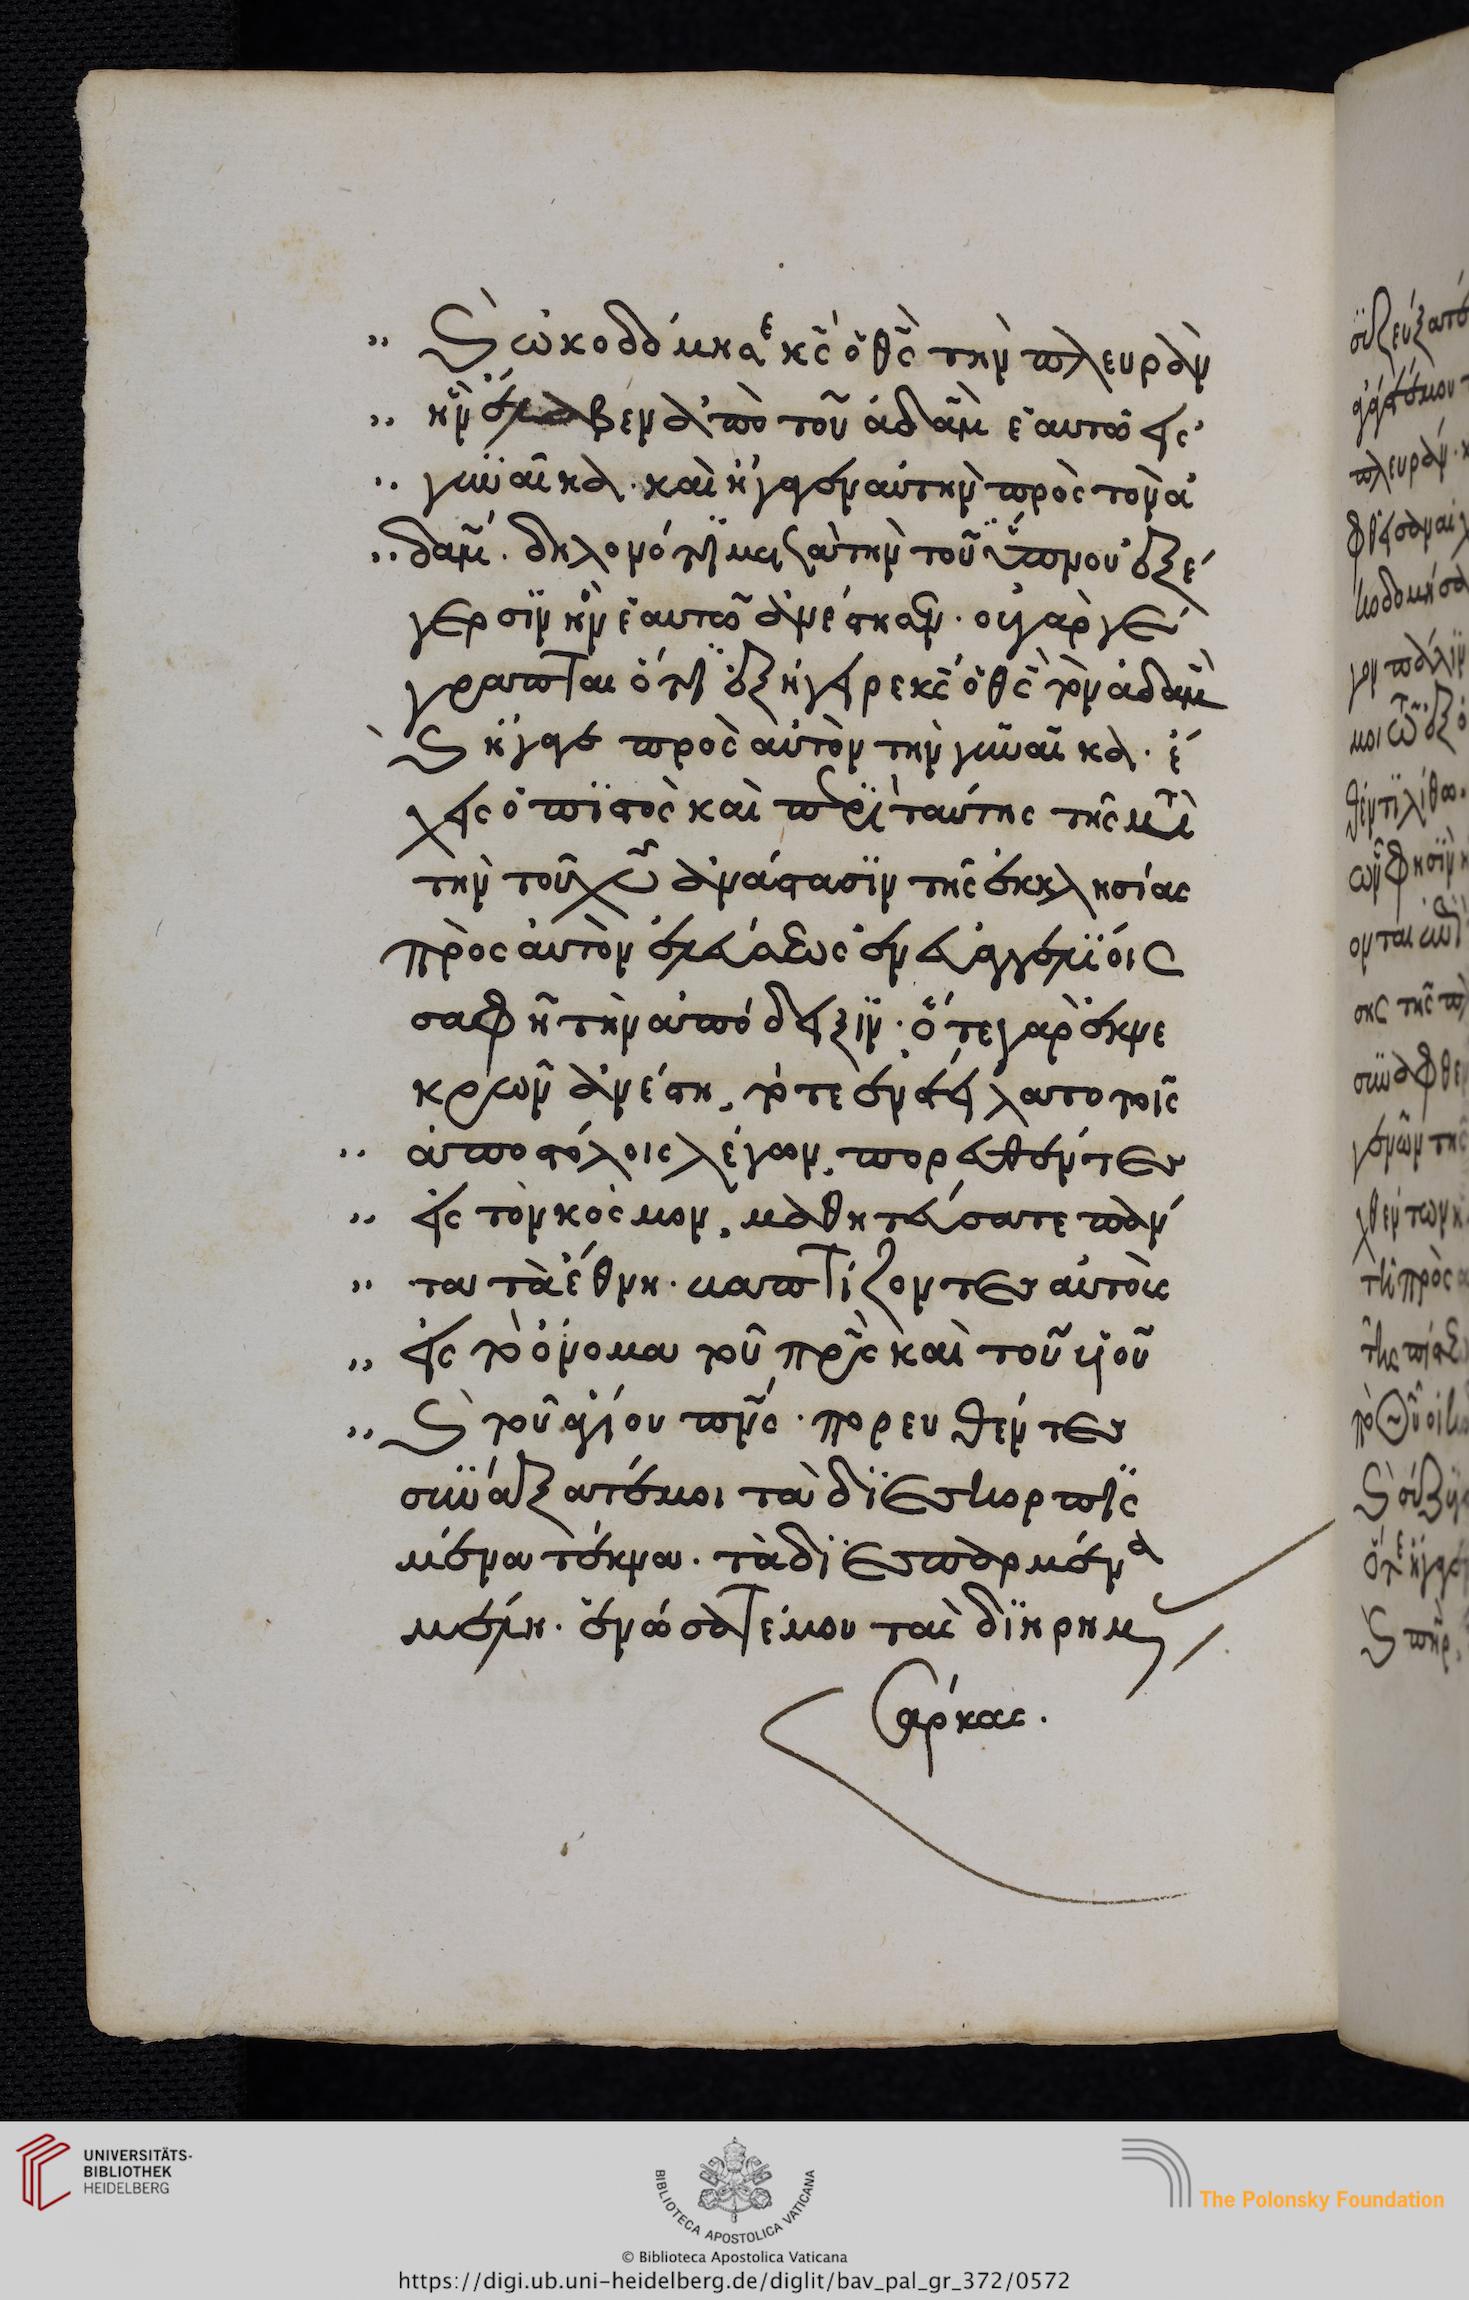 καὶ ὠκοδόμησε κ̅ς̅ ὁ θ̅ς̅ τὴν πλευρὰν
ἣν ἔλαβεν ἀπὸ τοῦ ἀδὰμ ἑαυτῶ εἰς
γυναῖκα. καὶ ἤγαγεν αὐτὴν πρὸς τὸν ἀ
δάμ. δηλονότι μετὰ τὴν τοῦ ὕπνου ἐξέ
γερσιν ἣν ἑαυτῶ ἀνέστησεν. οὐ γὰρ γέ
γραπται ὅτι ἐξήγειρε κ̅ς̅ ὁ θ̅ς̅ τὸν ἀδὰμ
καὶ ἤγαγε πρὸς αὐτὸν τὴν γυναῖκα. ἔ
χεις ὁ πιστὸς καὶ περὶ ταύτης τῆς μετὰ
τὴν τοῦ χ̅υ̅ ἀνάστασιν τῆς ἐκκλησίας
πρὸς αὐτὸν ἐλεύσεως ἐν εὐαγγελίοις
σαφῆ τὴν ἀπόδειξιν. ὅτε γὰρ ἐκ νε
κρῶν ἀνέστη, τότε ἐνετείλατο τοῖς
ἀποστόλοις λέγων, πορευθέντες
εἰς τὸν κόσμον, μαθητεύσατε πάν
τα τὰ ἔθνη. βαπτίζοντες αὐτοὺς
εἰς τὸ ὄνομα τοῦ π̅ρ̅ς̅ καὶ τοῦ υἱοῦ
καὶ τοῦ ἁγίου π̅ν̅ς̅. πορευθέντες
συνάξατέ μοι τὰ διεσκορπισ
μένα τέκνα. τὰ διεσπαρμένα
μέλη. ἑνώσατέ μου τὰς διηρημ
σάρκας.
UNIVERSITÄTS-
BIBLIOTHEK
HEIDELBERG
BIBLIOTECA APOSTOLICA VATICANA
The Polonsky Foundation
© Biblioteca Apostolica Vaticana
https://digi.ub.uni-heidelberg.de/diglit/bav_pal_gr_372/0572